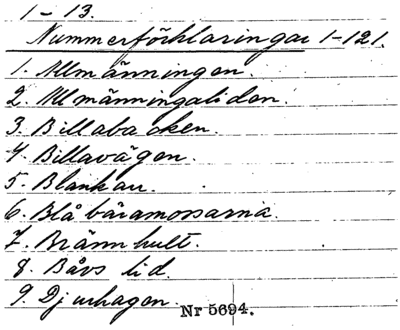 1-13.
Nummerförklaringar 1-121.
1. Allmänningen.
2. Allmänningaliden.
3. Billabacken.
4. Billavägen.
5. Blankan.
6. Blåbäramossarna.
7. Brännhult.
8. Båvs lid.
9. Djurhagen.
Nr 5694.